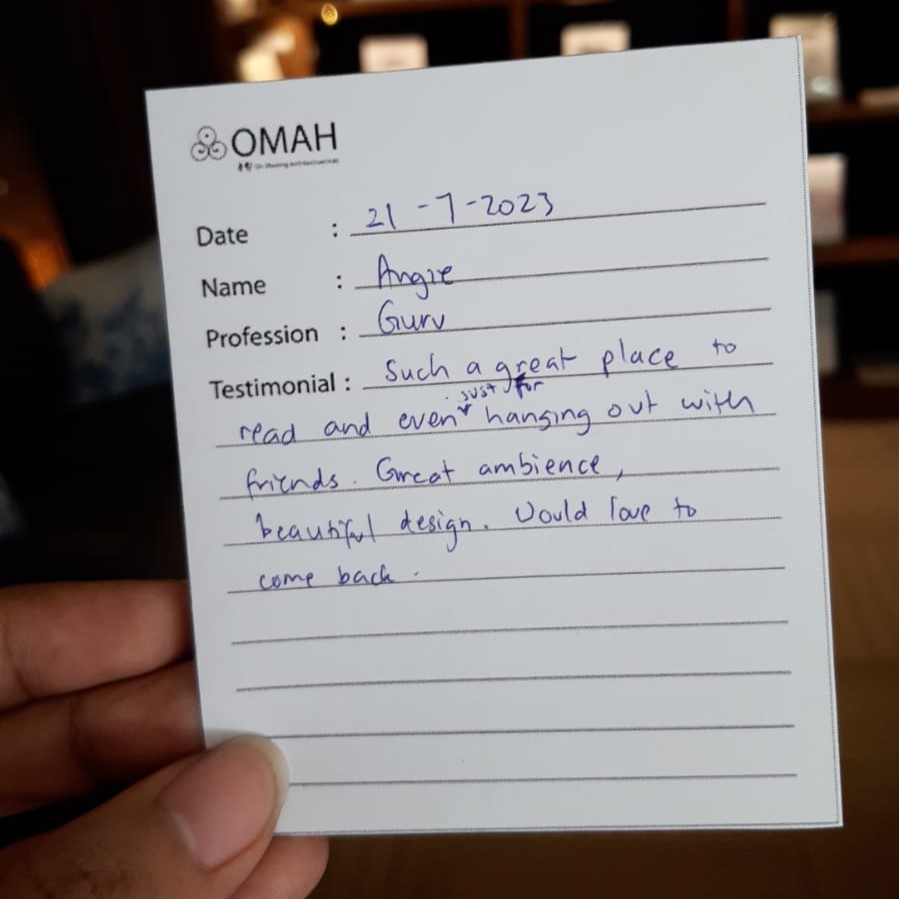 OMAH
Date : 21-7-2023
Name : Angie
Profession : Guru
Testimonial : Such a great place to
just for
read and even hanging out with
friends. Great ambience,
beautiful design. Would love to
come back.